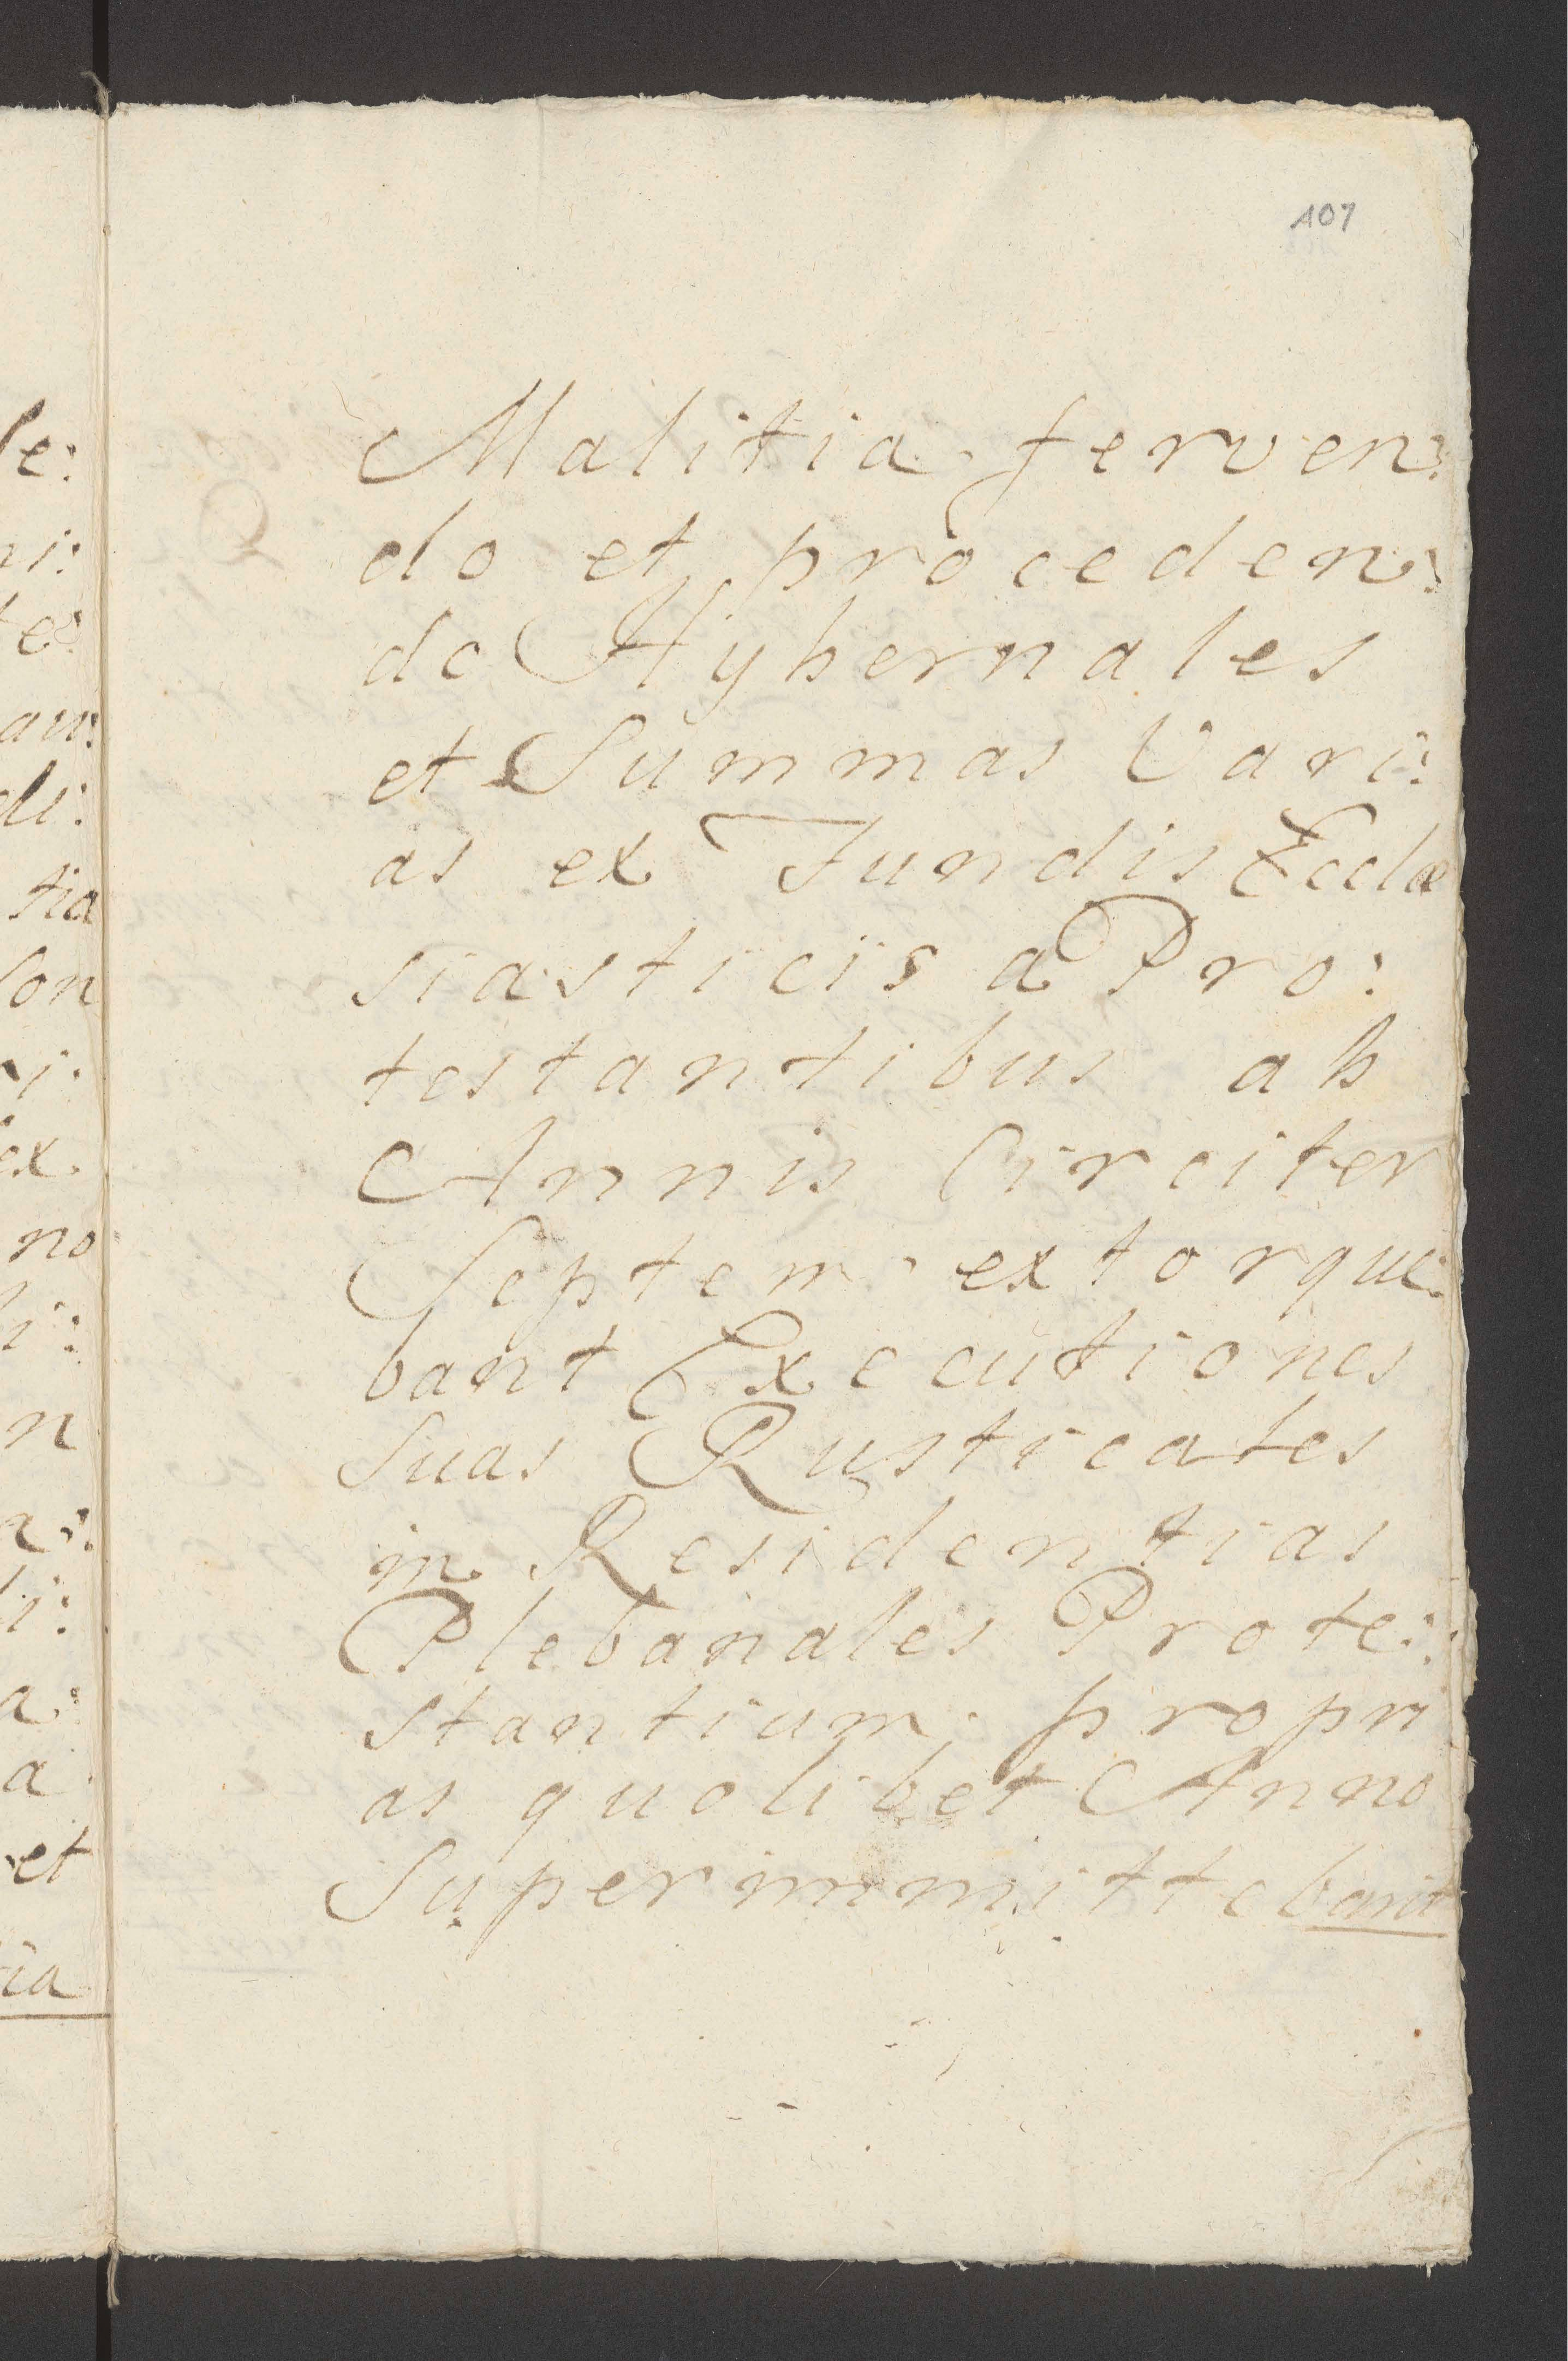 107
Malitia ferven:
do et proceden:
do Hybernales
et Summas Vari:
as ex Fundis Eccle
siasticis a Pro:
testantibus ab
Annis Circiter
Septem extorque:
bant Executiones
Suas Rusticales
in Residentias
Plebanales Prote:
stantium propri
as quolibet Anno
Superimmittebant
le:
ni:
te:
di:
tia
ex
no
n
a:
a
et
tia